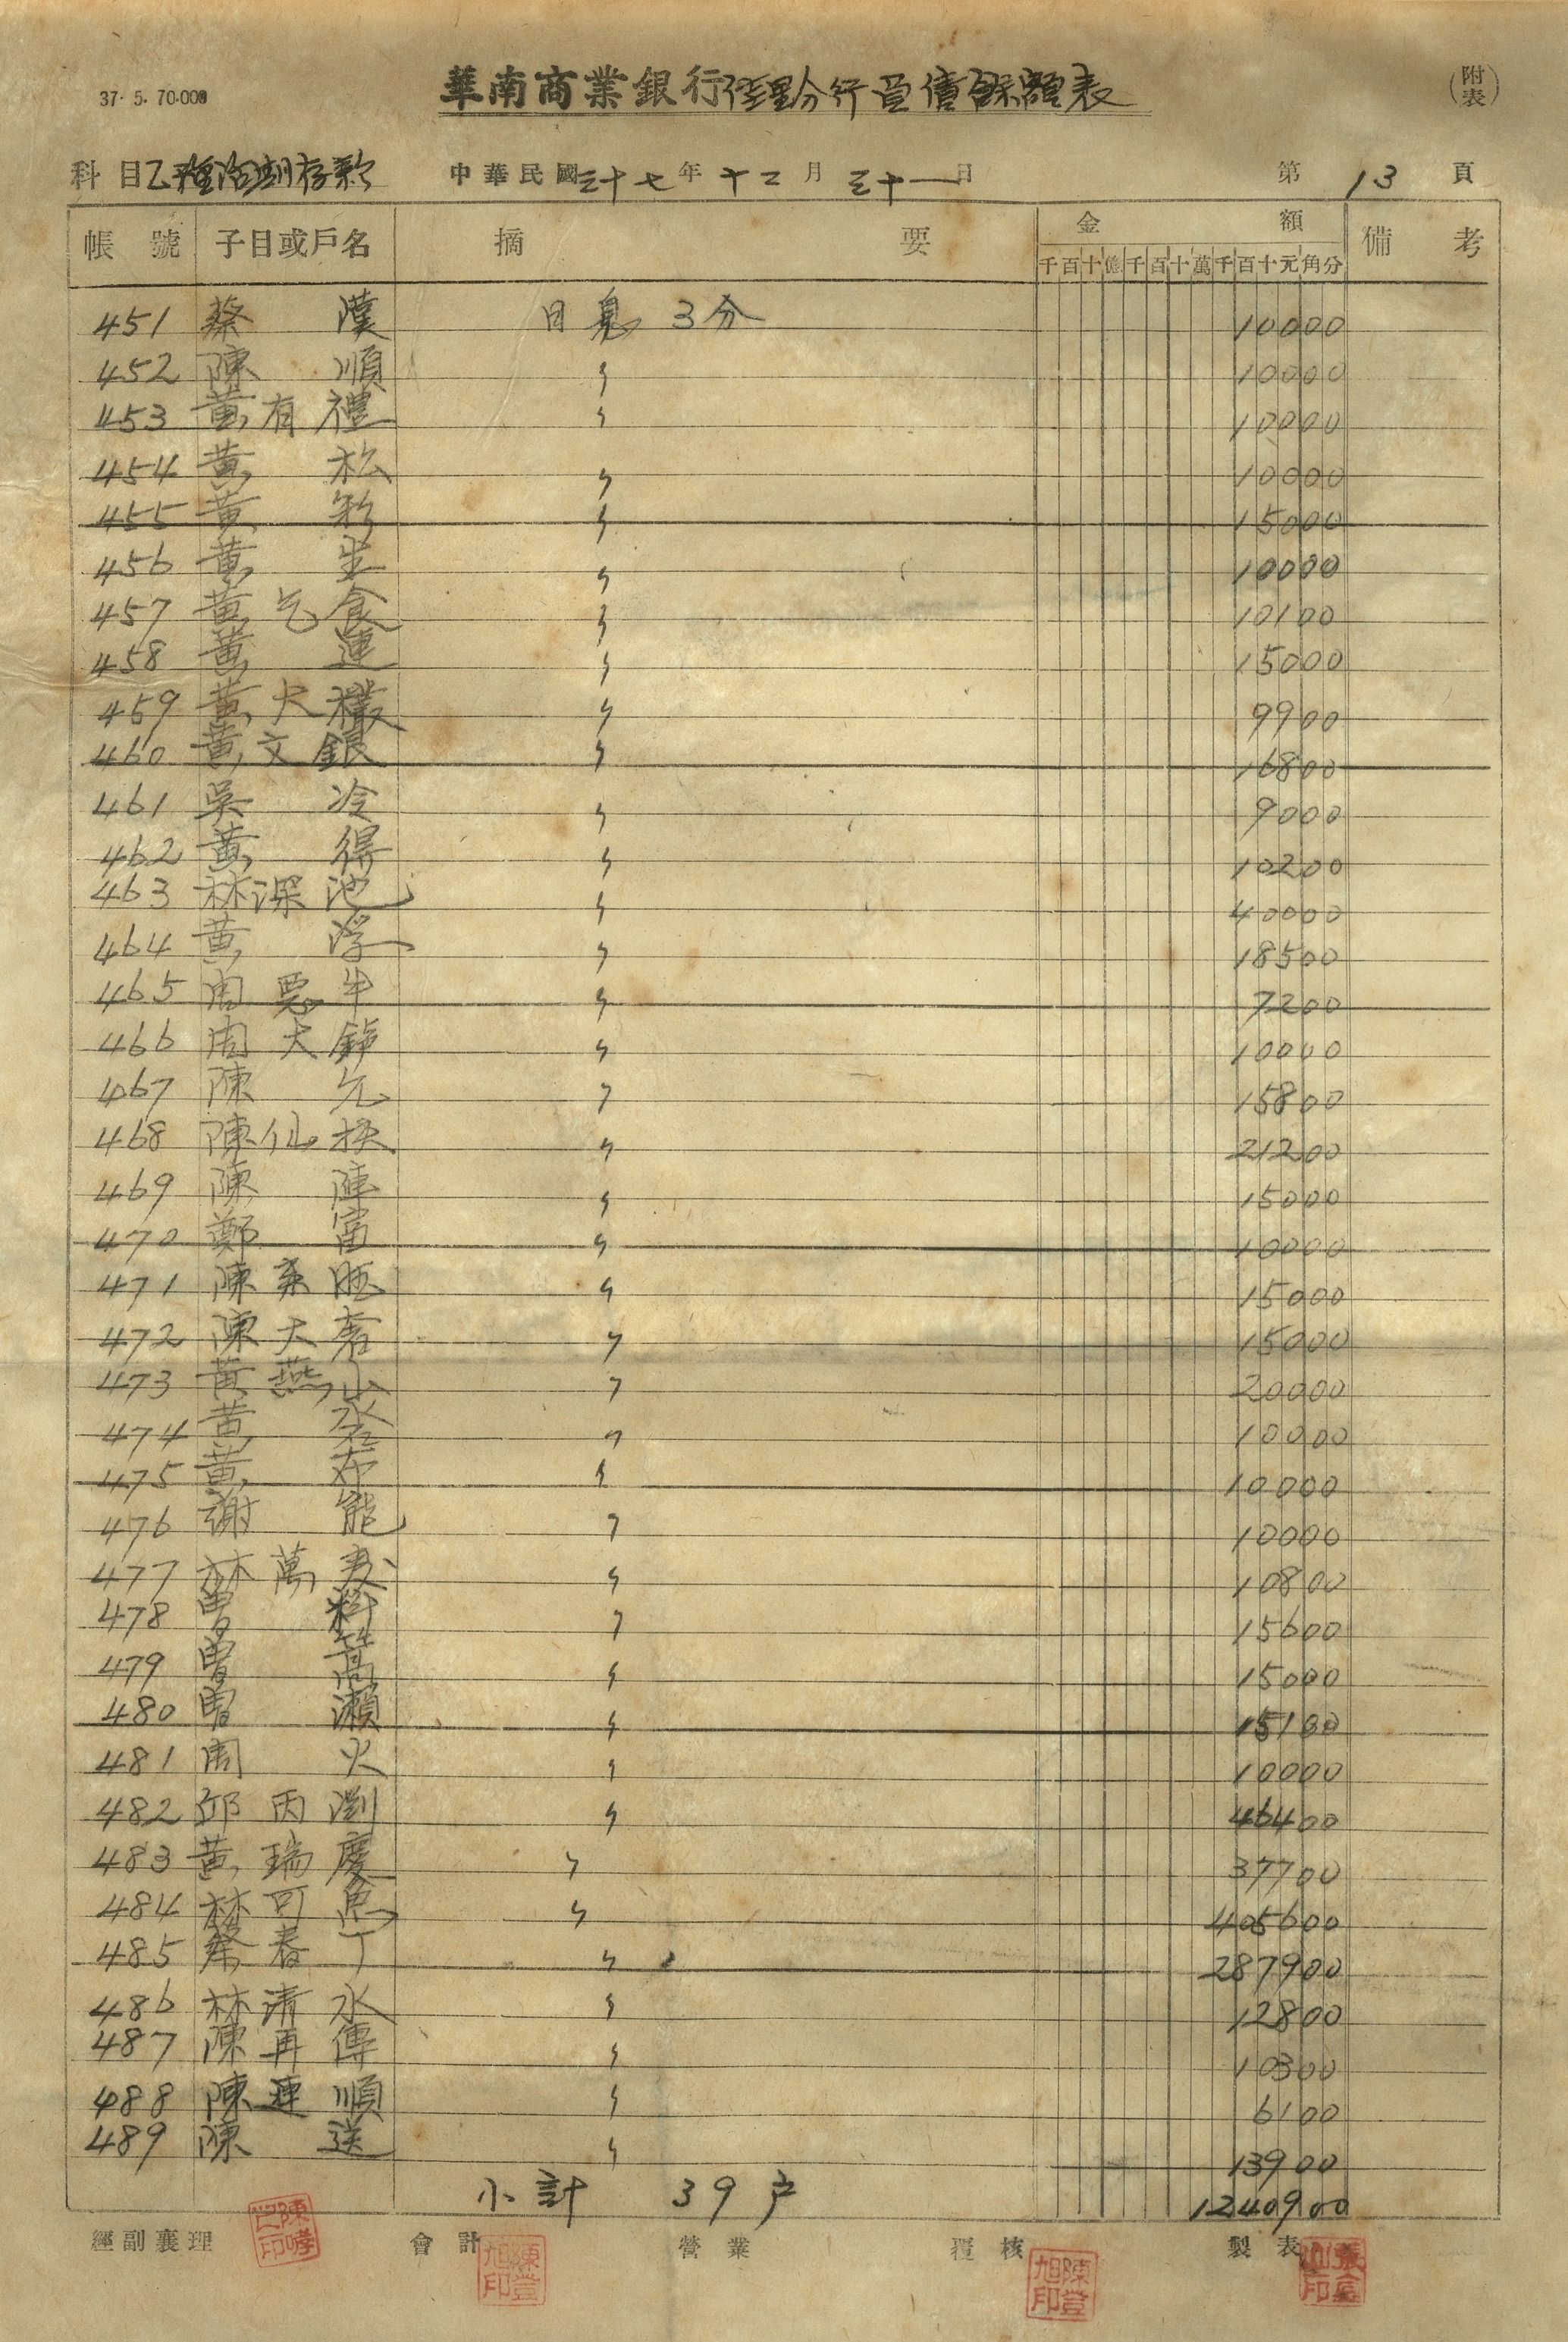 37. 5. 70.000
華南商業銀行佳里分行負債餘額表
(附表)
科目 乙種活期存款 中華民國三十七年十二月三十一日 第13頁
帳號 子目或戶名 摘要 金額 備考
千百十億千百十萬千百十元角分
451 蔡漢 日息3分 10000
452 陳順 〃 10000
453 黃有禮 〃 10000
454 黃松 〃 10000
455 黃彩 〃 15000
456 黃生 〃 10000
457 黃乞食 〃 10100
458 黃連 〃 15000
459 黃大 〃 9900
460 黃文銀 〃 16800
461 吳冷 〃 9000
462 黃得 〃 10200
463 林深池 〃 40000
464 黃浮 〃 18500
465 周惡牛 〃 7200
466 周大 〃 10000
467 陳允 〃 15800
468 陳仙扶 〃 21200
469 陳陣 〃 15000
470 鄭富 〃 10000
471 陳旺 〃 15000
472 陳大 〃 15000
473 黃燕 〃 20000
474 黃 〃 10000
475 黃 〃 10000
476 謝能 〃 10000
477 林萬 〃 10800
478 曾料 〃 15600
479 曾 〃 15000
480 曾瀨 〃 15100
481 周火 〃 10000
482 邱丙 〃 46400
483 黃瑞慶 〃 37700
484 林可魚 〃 405600
485 蔡春丁 〃 287900
486 林清水 〃 12800
487 陳再傳 〃 10300
488 陳連順 〃 6100
489 陳送 〃 13900
小計 39戶 1240900
經副襄理 會計 營業 覆核 製表
陳登旭印
陳登旭印